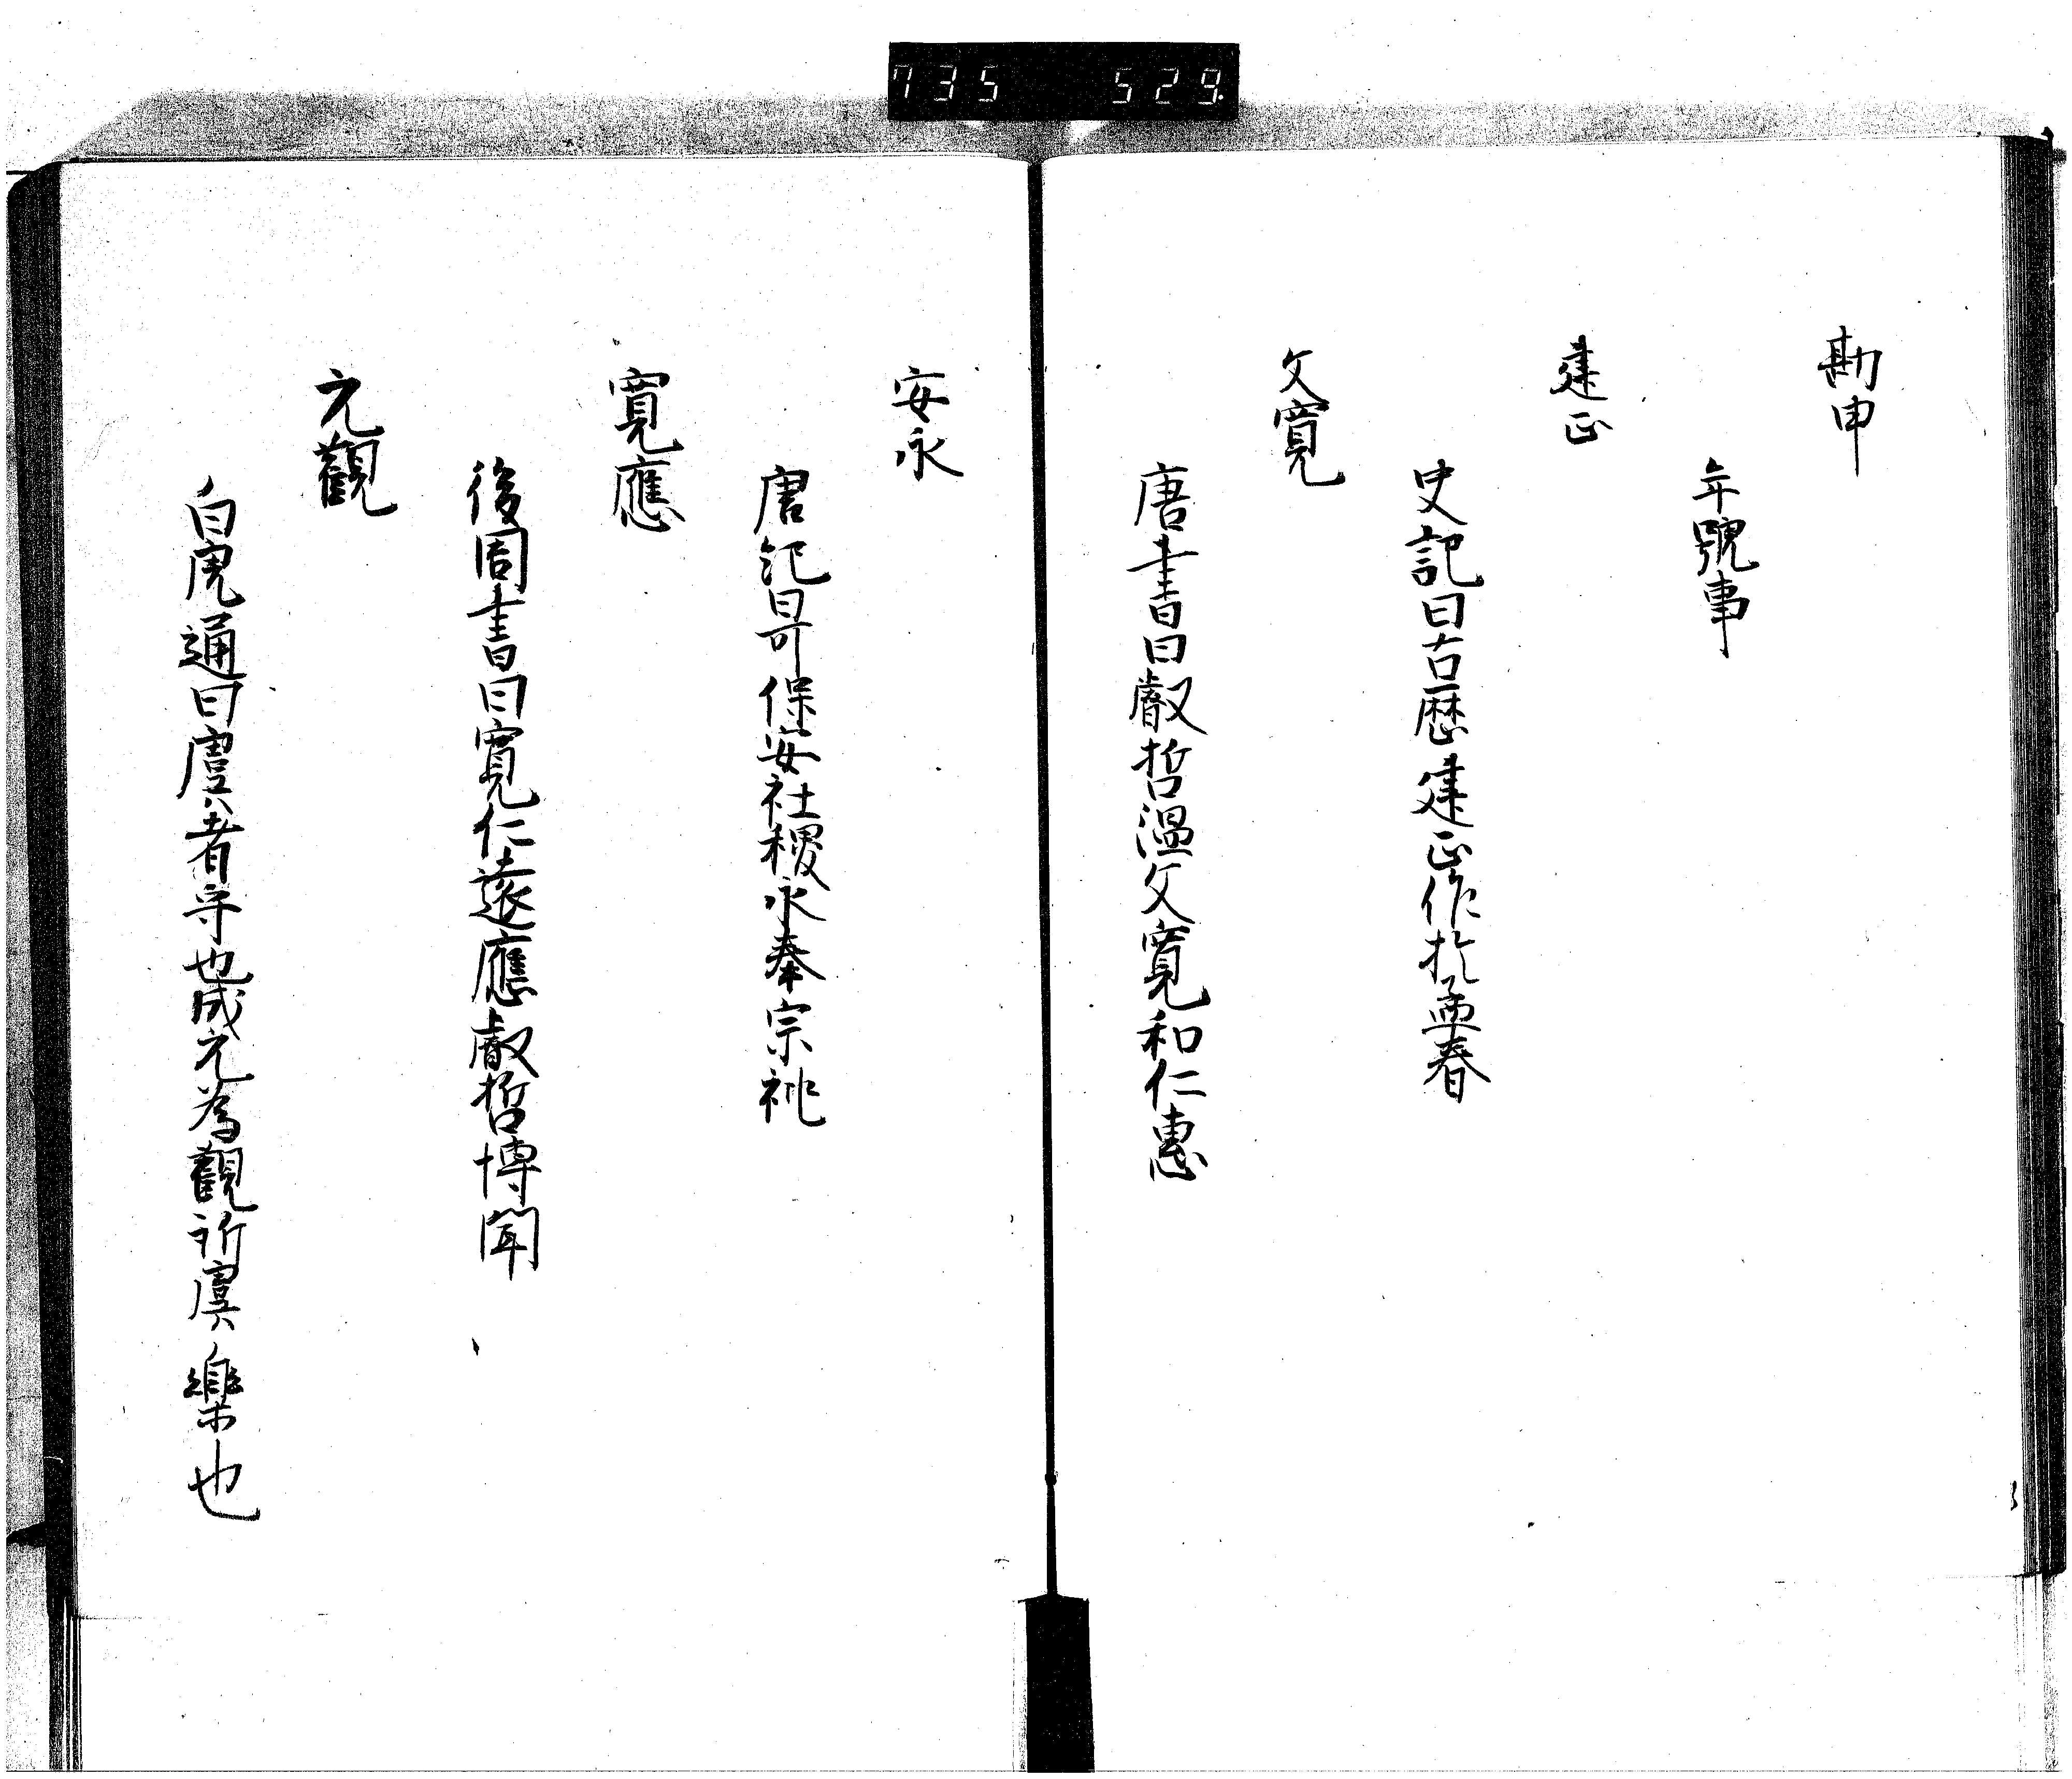 735 529.
勘申
年號事
建正
史記曰古歴建正作於孟春
文寛
唐書曰叡哲温文寛和仁惠
安永
唐記曰可保安社稷永奉宗祧
寛應
後周書曰寛仁遠應叡哲博聞
元觀
白虎通曰虞者守也成元為觀祈虞樂也